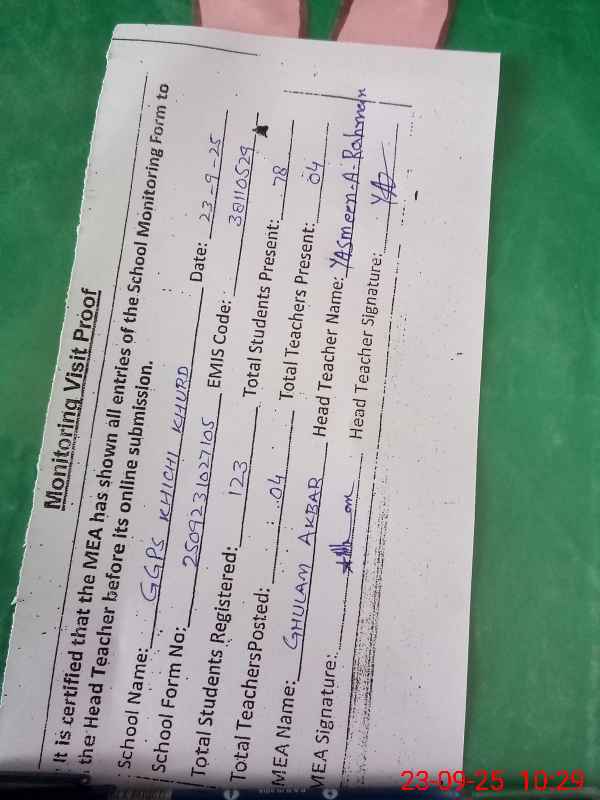 Monitoring Visit Proof
It is certified that the MEA has shown all entries of the School Monitoring Form to
the Head Teacher before its online submission.
School Name: GGPS KHICHI KHURD Date: 23-9-25
School Form No: 25092231027105 EMIS Code: 38110529
Total Students Registered: 123 Total Students Present: 78
Total TeachersPosted: 04 Total Teachers Present: 04
MEA Name: GHULAM AKBAR Head Teacher Name: YASmeen-A-Rahman
MEA Signature: Head Teacher Signature:
23-09-25 10:29